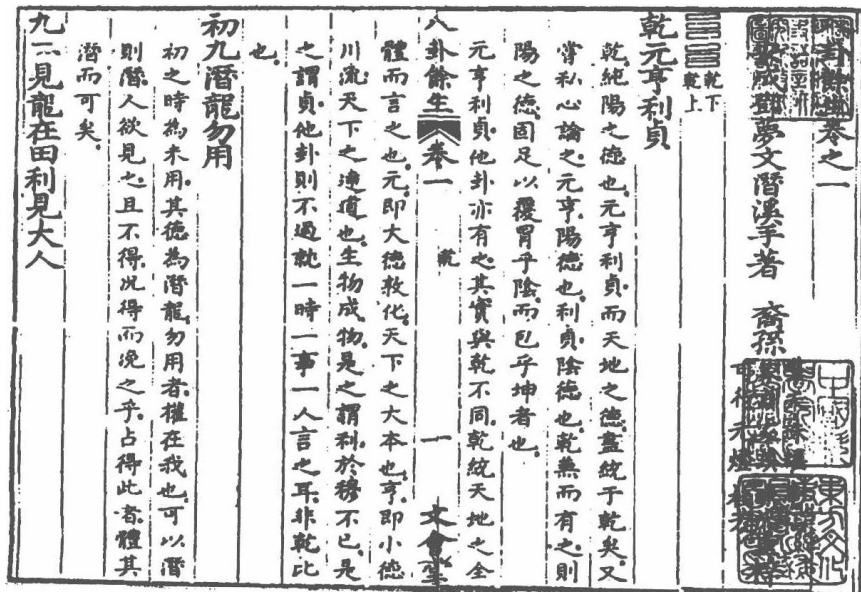 八卦餘生卷之一
成鄧夢文潛溪手著 裔孫
乾下
乾上
乾元亨利貞
乾純陽之德也元亨利貞而天地之德盡統于乾矣又
嘗私心論之元亨陽德也利貞陰德也乾兼而有之則
陽之德固足以覆冒乎陰而包乎坤者也
元亨利貞他卦亦有之其實與乾不同乾統天地之全
八卦餘生 卷一 乾 一 文會堂
體而言之也元即大德敦化天下之大本也亨即小德
川流天下之達道也生物成物是之謂利於穆不已是
之謂貞他卦則不過就一時一事一人言之耳非乾比
也
初九潛龍勿用
初之時為未用其德為潛龍勿用者權在我也可以潛
則潛人欲見之且不得況得而浼之乎占得此者體其
潛而可矣
九二見龍在田利見大人